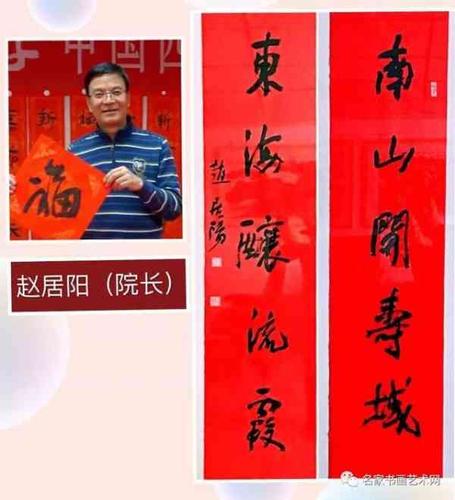 中国西
新
新
福
赵居阳（院长）
南山開壽域
東海釀流霞
趙居陽
名家书画艺术网